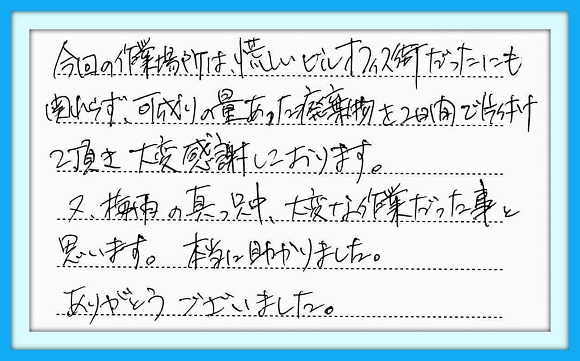 今回の作業場所は、慌しいビルオフィス街だったにも
関わらず、可成りの量あった廃棄物を2日間で片付け
て頂き大変感謝しております。
又、梅雨の真っ只中、大変な作業だった事と
思います。 本当に助かりました。
ありがとうございました。